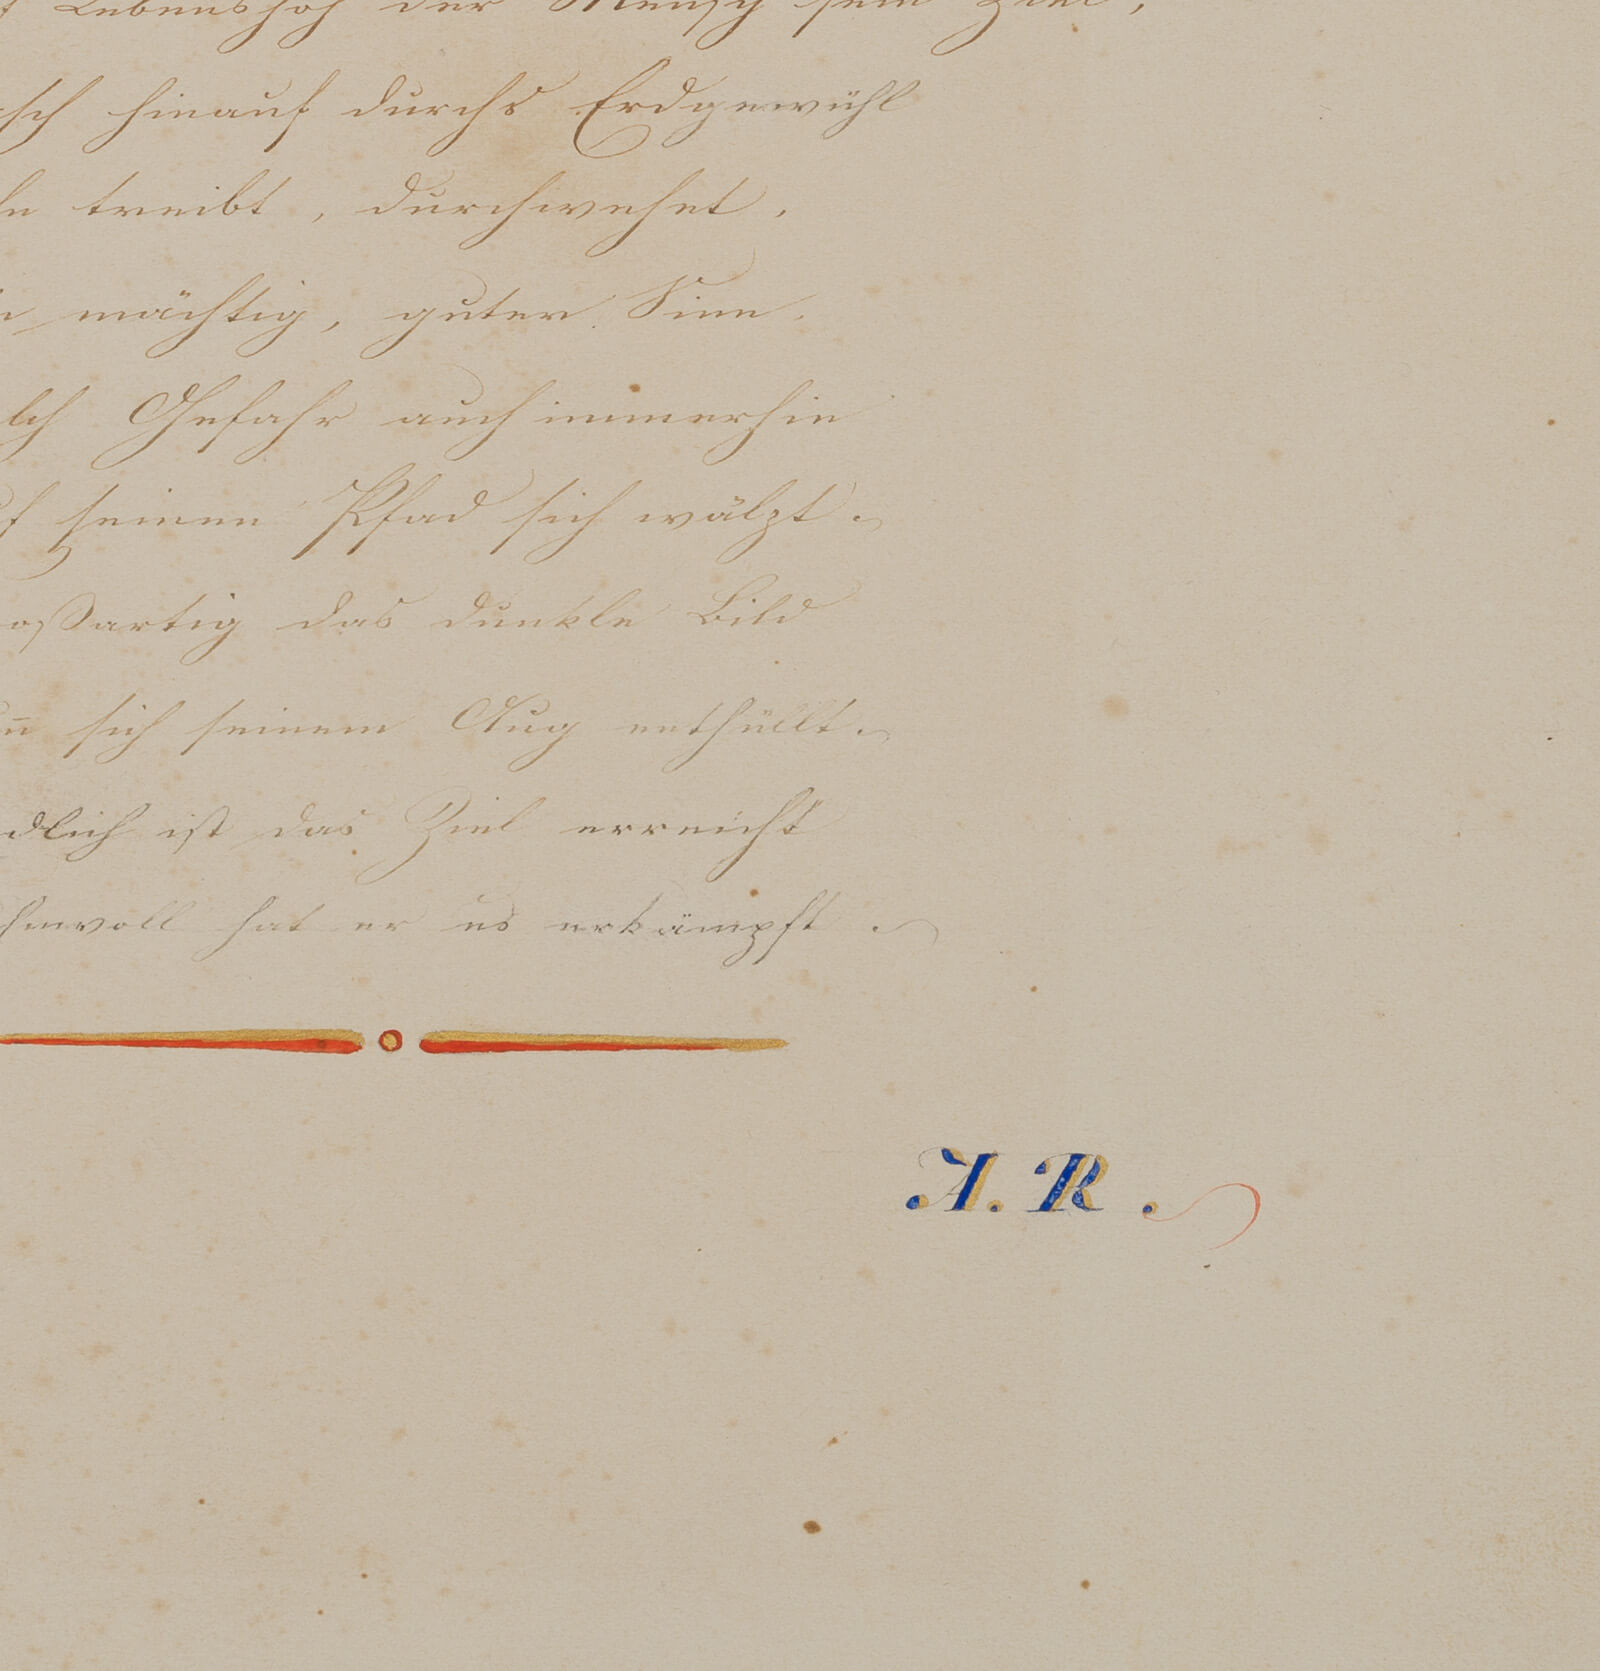 Lebenshof der Mensch sein Ziel,
sch hinauf durchs Erdgewühl
treibt, durchwehet.
mächtig, guter Sinn.
lch Gefahr auch immerhin
f seinen Pfad sich wälzt.
oßartig das dunkle Bild
sich seinem Aug enthüllt.
dlich ist das Ziel erreicht
hmvoll hat er es erkämpft.
A. R.